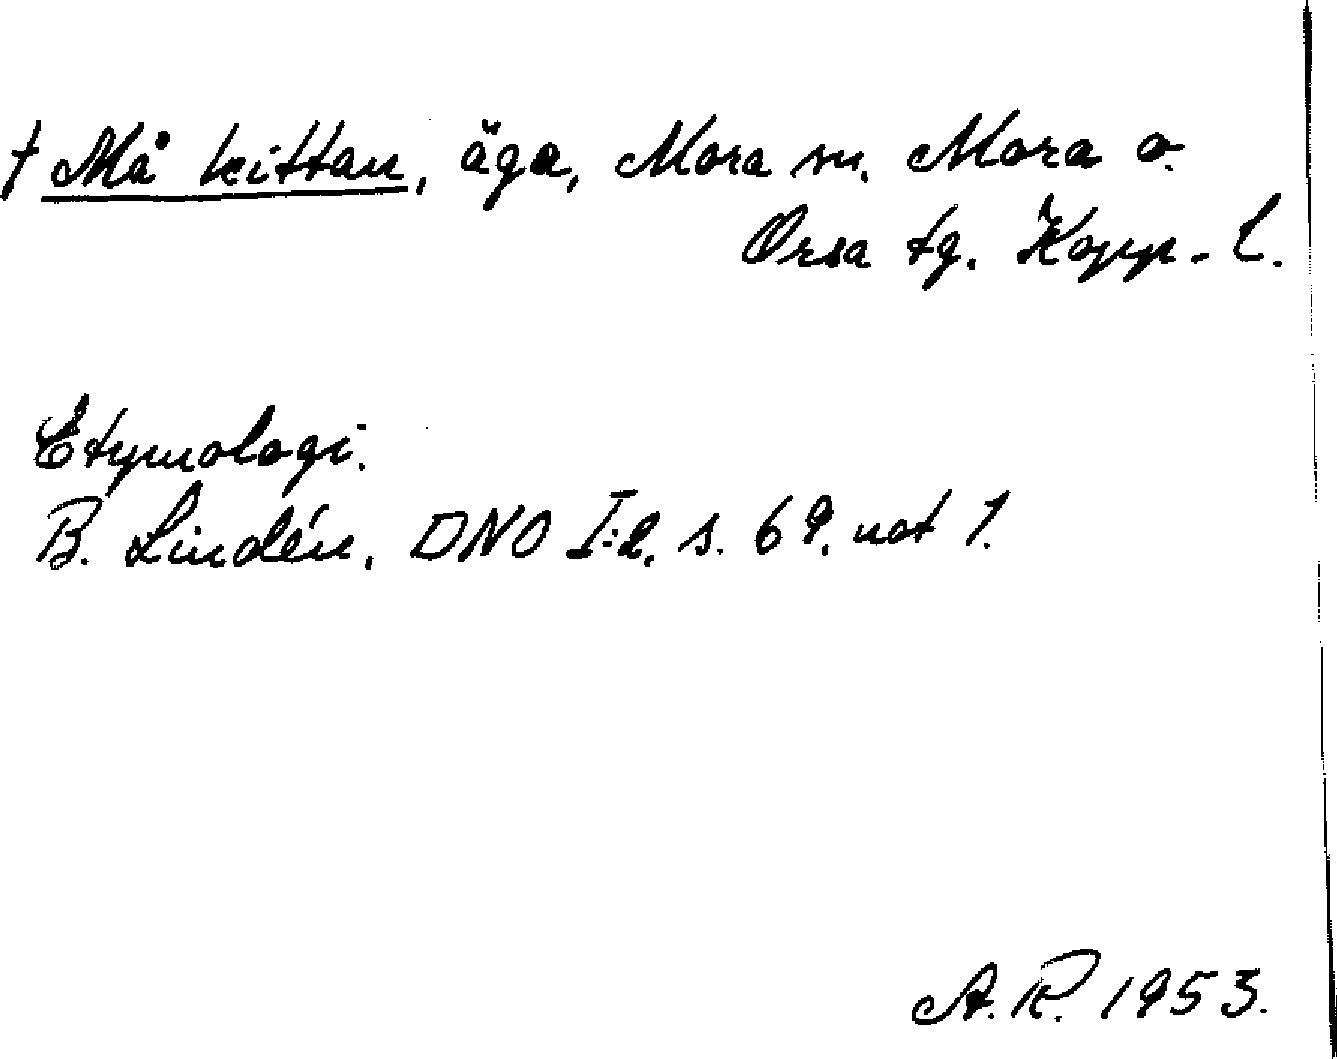 † Må kittan, äga, Mora sn. Mora o.
Orsa tg. Kopp. l.
Etymologi.
B. Lindén, DNO I:2, s. 69, not 1.
A. R. 1953.